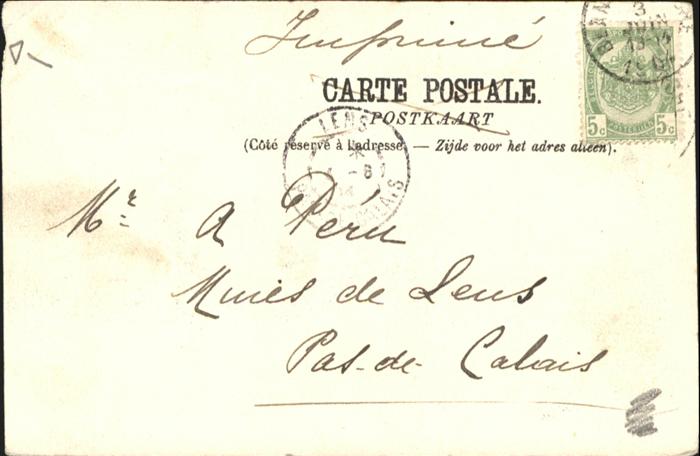 Imprimé
CARTE POSTALE.
POSTKAART
(Côté réservé à l'adresse. — Zijde voor het adres alleen).
3
JUIN
5c 5c
LENS
CALAIS
Mr A Péru
Mines de Lens
Pas-de-Calais